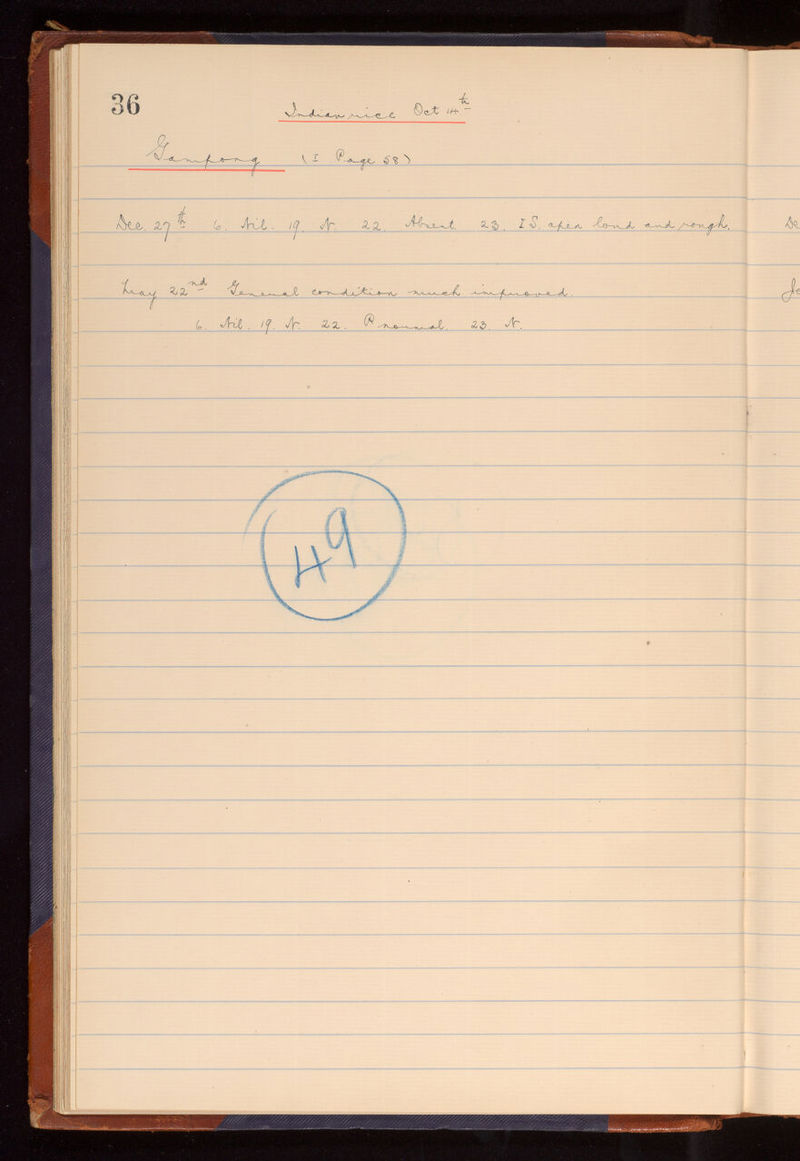 36
Indian rice Oct 14th
Gampong (I Page 58)
Dec. 27th 6. Nil. 19. N. 22. Absent. 23. IS. apex loud and rough.
May 22nd General condition much improved.
6. Nil. 19. N. 22. P. normal. 23. N.
49